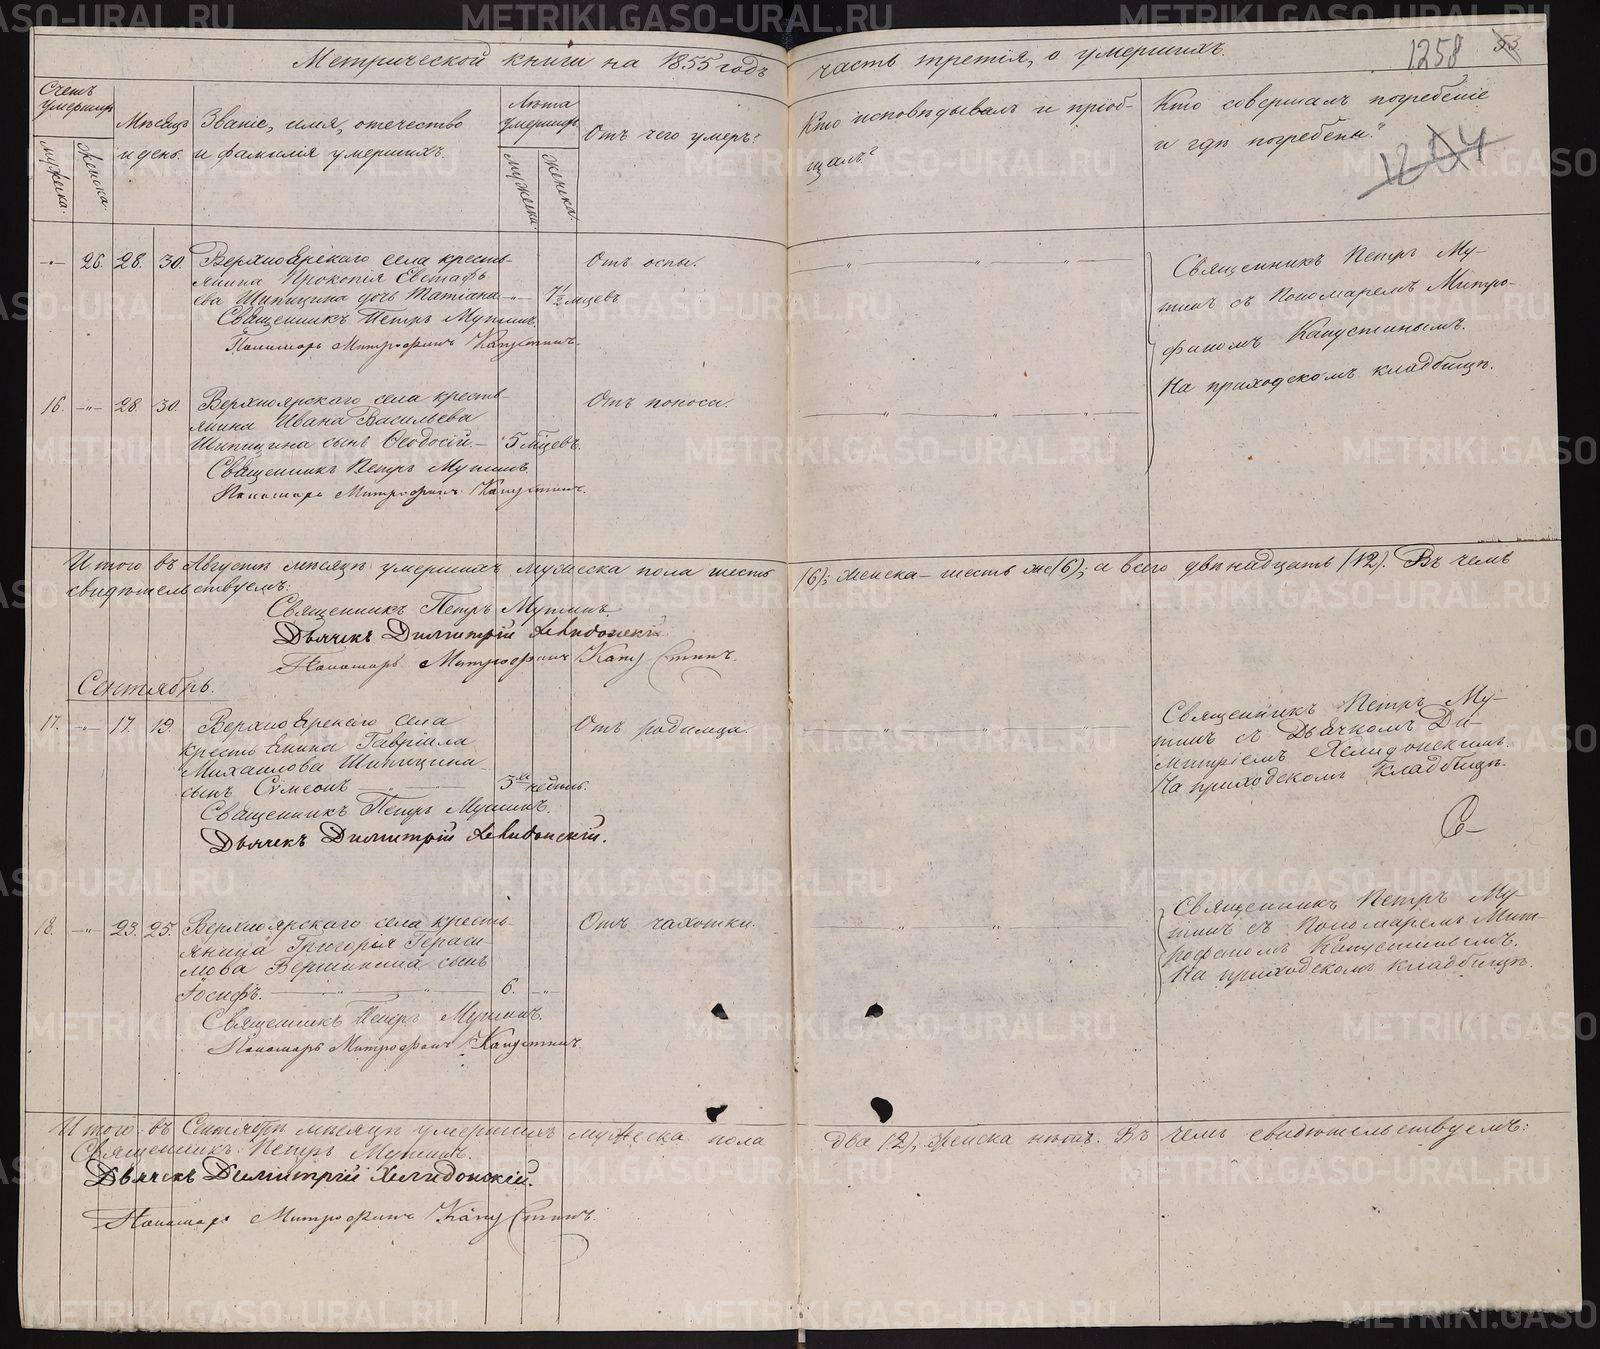 Метрической книги на 1855 годъ
часть третія, о умершихъ.
1258
53
Счетъ умершихъ
Мужеска.
Женска.
Мѣсяцъ
и день.
Званіе, имя, отечество
и фамилія умершихъ.
Лѣта умершихъ
Мужеска.
Женска.
Отъ чего умеръ?
Кто исповѣдывалъ и пріоб-
щалъ?
Кто совершалъ погребеніе
и гдѣ погребены?
1204
-"- 26. 28. 30.
Верхноярскаго села кресть-
янина Прокопія Евстафь-
ева Шипицина дочь Татіана -"- 7 1/2 мцевъ
Священникъ Петръ Мутинъ.
Пономарь Митрофанъ Капустинъ.
Отъ оспы.
Священникъ Петръ Му-
тинъ съ Пономаремъ Митро-
фаномъ Капустинымъ.
На приходскомъ кладбищѣ.
16. -"- 28. 30.
Верхноярскаго села кресть-
янина Ивана Васильева
Шипицина сынъ Ѳеодосій - 5 мцевъ.
Священникъ Петръ Мутинъ.
Пономарь Митрофанъ Капустинъ.
Отъ поноса.
Итого въ Августѣ мѣсяцѣ умершихъ мужеска пола шесть
(6); женска - шесть же (6); а всего двѣнадцать (12). Въ чемъ
свидѣтельствуемъ:
Священникъ Петръ Мутинъ
Дьячекъ Димитрій Хелидонскій
Пономарь Митрофанъ Капустинъ.
Сентябрь.
17. -"- 17. 19.
Верхноярскаго села
крестьянина Гавріила
Михайлова Шипицина
сынъ Сѵмеонъ 3 недѣль.
Священникъ Петръ Мутинъ.
Дьячекъ Димитрій Хелидонскій.
Отъ родимца.
Священникъ Петръ Му-
тинъ съ Дьячкомъ Ди-
митріемъ Хелидонскимъ.
На приходскомъ кладбищѣ.
18. -"- 23. 25.
Верхноярскаго села кресть-
янина Григорія Гераси-
мова Вершинина сынъ
Іосифъ. 6. -"-
Священникъ Петръ Мутинъ.
Пономарь Митрофанъ Капустинъ.
Отъ чахотки.
Священникъ Петръ Му-
тинъ съ Пономаремъ Мит-
рофаномъ Капустинымъ.
На приходскомъ кладбищѣ.
Итого въ Сентябрѣ мѣсяцѣ умершихъ мужеска пола
два (2), женска нѣтъ. Въ чемъ свидѣтельствуемъ:
Священникъ Петръ Мутинъ.
Дьячекъ Димитрій Хелидонскій.
Пономарь Митрофанъ Капустинъ.
METRIKI.GASO-URAL.RU